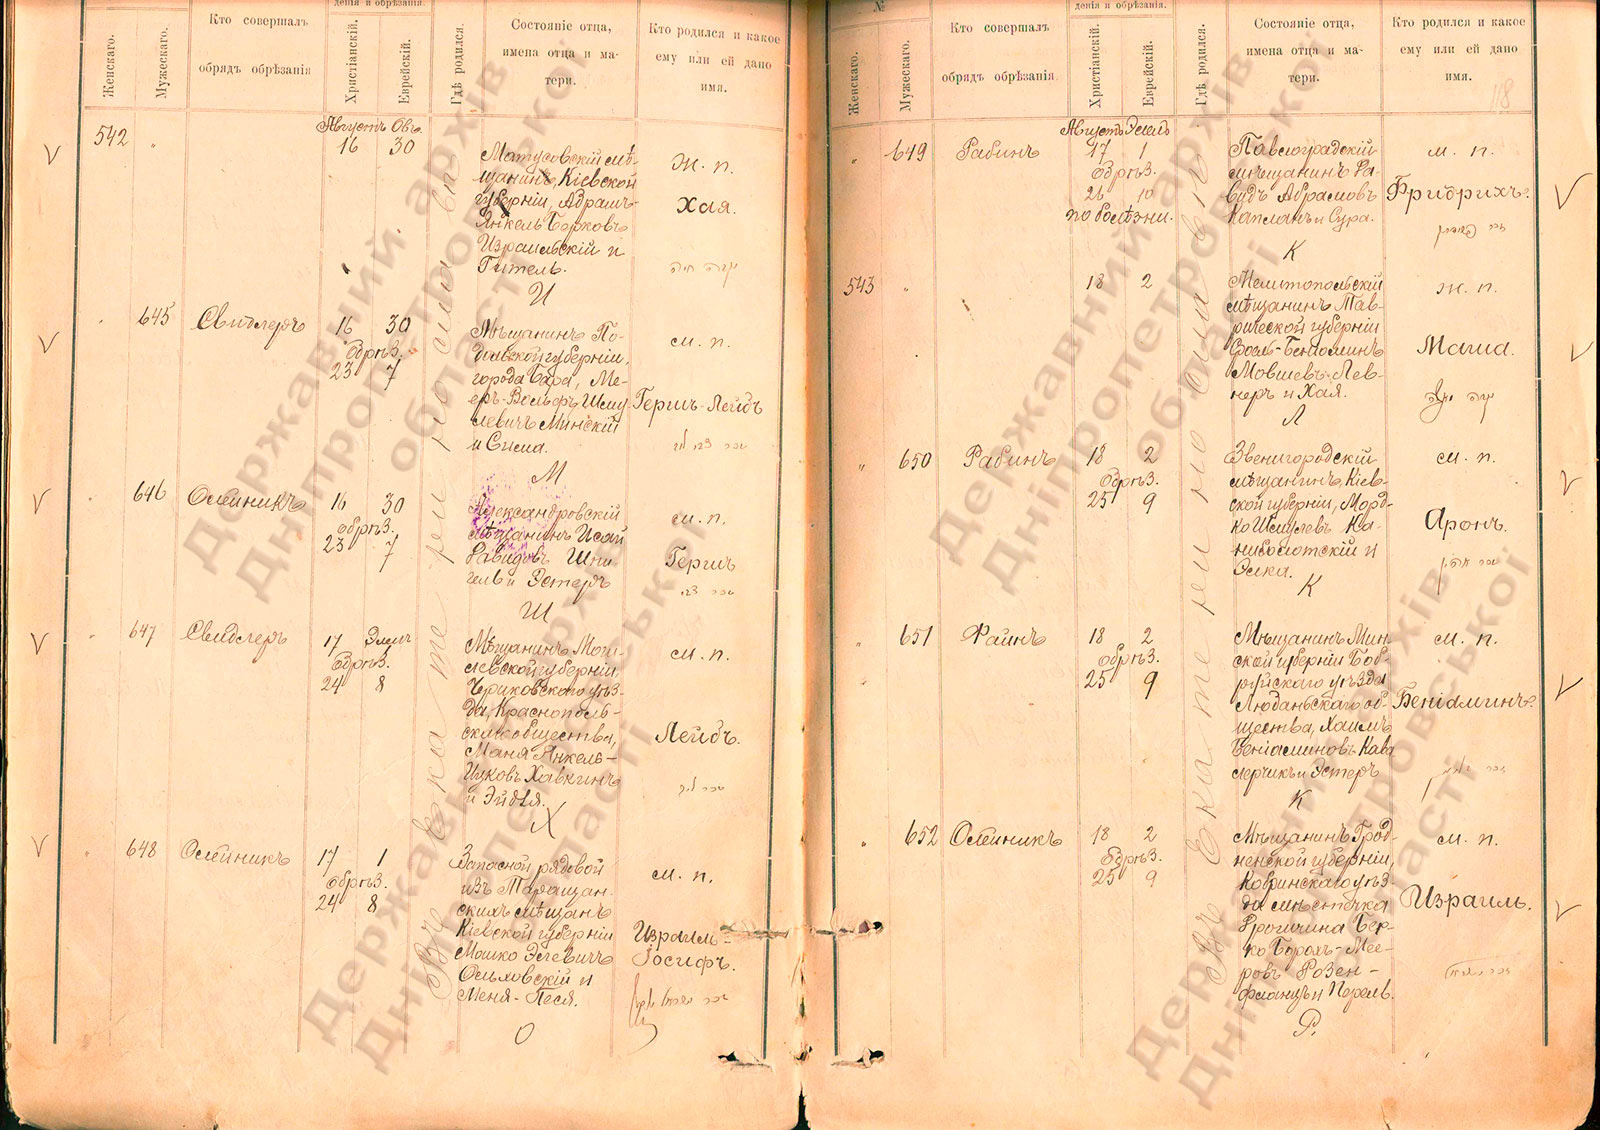 Женскаго.
Мужескаго.
Кто совершалъ
обрядъ обрѣзанія
денія и обрѣзанія.
Христіанскій.
Еврейскій.
Гдѣ родился.
Состояніе отца,
имена отца и ма-
тери.
Кто родился и какое
ему или ей дано
имя.
542
"
Августъ Овъ.
16 30
Матусовскій мѣ-
щанинъ, Кіевской
губерніи, Абрамъ-
Янкель Берковъ
Израильскій и
Гитель.
И
Ж. п.
Хая.
645
Свидлеръ
16 30
обрѣз.
23 7
Мѣщанинъ По-
дольской губерніи,
города Бара, Ме-
еръ-Вольфъ Шму-
левичъ Минскій
и Сима.
М
м. п.
Гершъ-Лейбъ
646
Олейникъ
16 30
обрѣз.
23 7
Александровскій
мѣщанинъ Исай
Давидовъ Шпи-
гель и Эстеръ
Ш
м. п.
Гершъ
647
Свидлеръ
17 Элелъ
обрѣз.
24 8
Мѣщанинъ Моги-
левской губерніи,
Чериковскаго уѣз-
да, Краснополь-
скаго общества,
Маня Янкель-
Ицковъ Хавкинъ
и Эйдля.
Х
м. п.
Лейбъ.
648
Олейникъ
17 1
обрѣз.
24 8
Запасной рядовой
изъ Таращан-
скихъ мѣщанъ
Кіевской губерніи
Мошко Эльевичъ
Ольховскій и
Меня-Песя.
О
м. п.
Израиль-
Іосифъ.
Въ Екатеринославѣ
№
Женскаго.
Мужескаго.
Кто совершалъ
обрядъ обрѣзанія.
денія и обрѣзанія.
Христіанскій.
Еврейскій.
Гдѣ родился.
Состояніе отца,
имена отца и ма-
тери.
Кто родился и какое
ему или ей дано
имя.
118
"
649
Рабинъ
Августъ Элелъ
17 1
обрѣз.
26 10
по болѣзни.
Павлоградскій
мѣщанинъ Да-
видъ Абрамовъ
Капланъ и Сура.
К
м. п.
Фридрихъ.
543
"
18 2
Мелитопольскій
мѣщанинъ Тав-
рической губерніи
Іоэль-Беніоминъ
Мовшевъ Лев-
неръ и Хая.
Л
ж. п.
Маша.
"
650
Рабинъ
18 2
обрѣз.
25 9
Звенигородскій
мѣщанинъ, Кіев-
ской губерніи, Морд-
ко Шмулевъ Ка-
ниболотскій и
Элка.
К
м. п.
Аронъ.
651
Файнъ
18 2
обрѣз.
25 9
Мѣщанинъ Мин-
ской губерніи Боб-
руйскаго уѣзда
Любаньскаго об-
щества, Хаимъ
Беніаминовъ Кава
лерчикъ и Эстеръ
К
м. п.
Беніаминъ.
652
Олейникъ
18 2
обрѣз.
25 9
Мѣщанинъ Грод-
ненской губерніи,
Кобринскаго уѣз-
да мѣстечка
Дрогичина Бер-
ко Борохъ-Мее-
ровъ Розен-
фланцъ и Перель.
Р.
м. п.
Израиль.
Въ Екатеринославѣ
Державний архів
Дніпропетровської
області